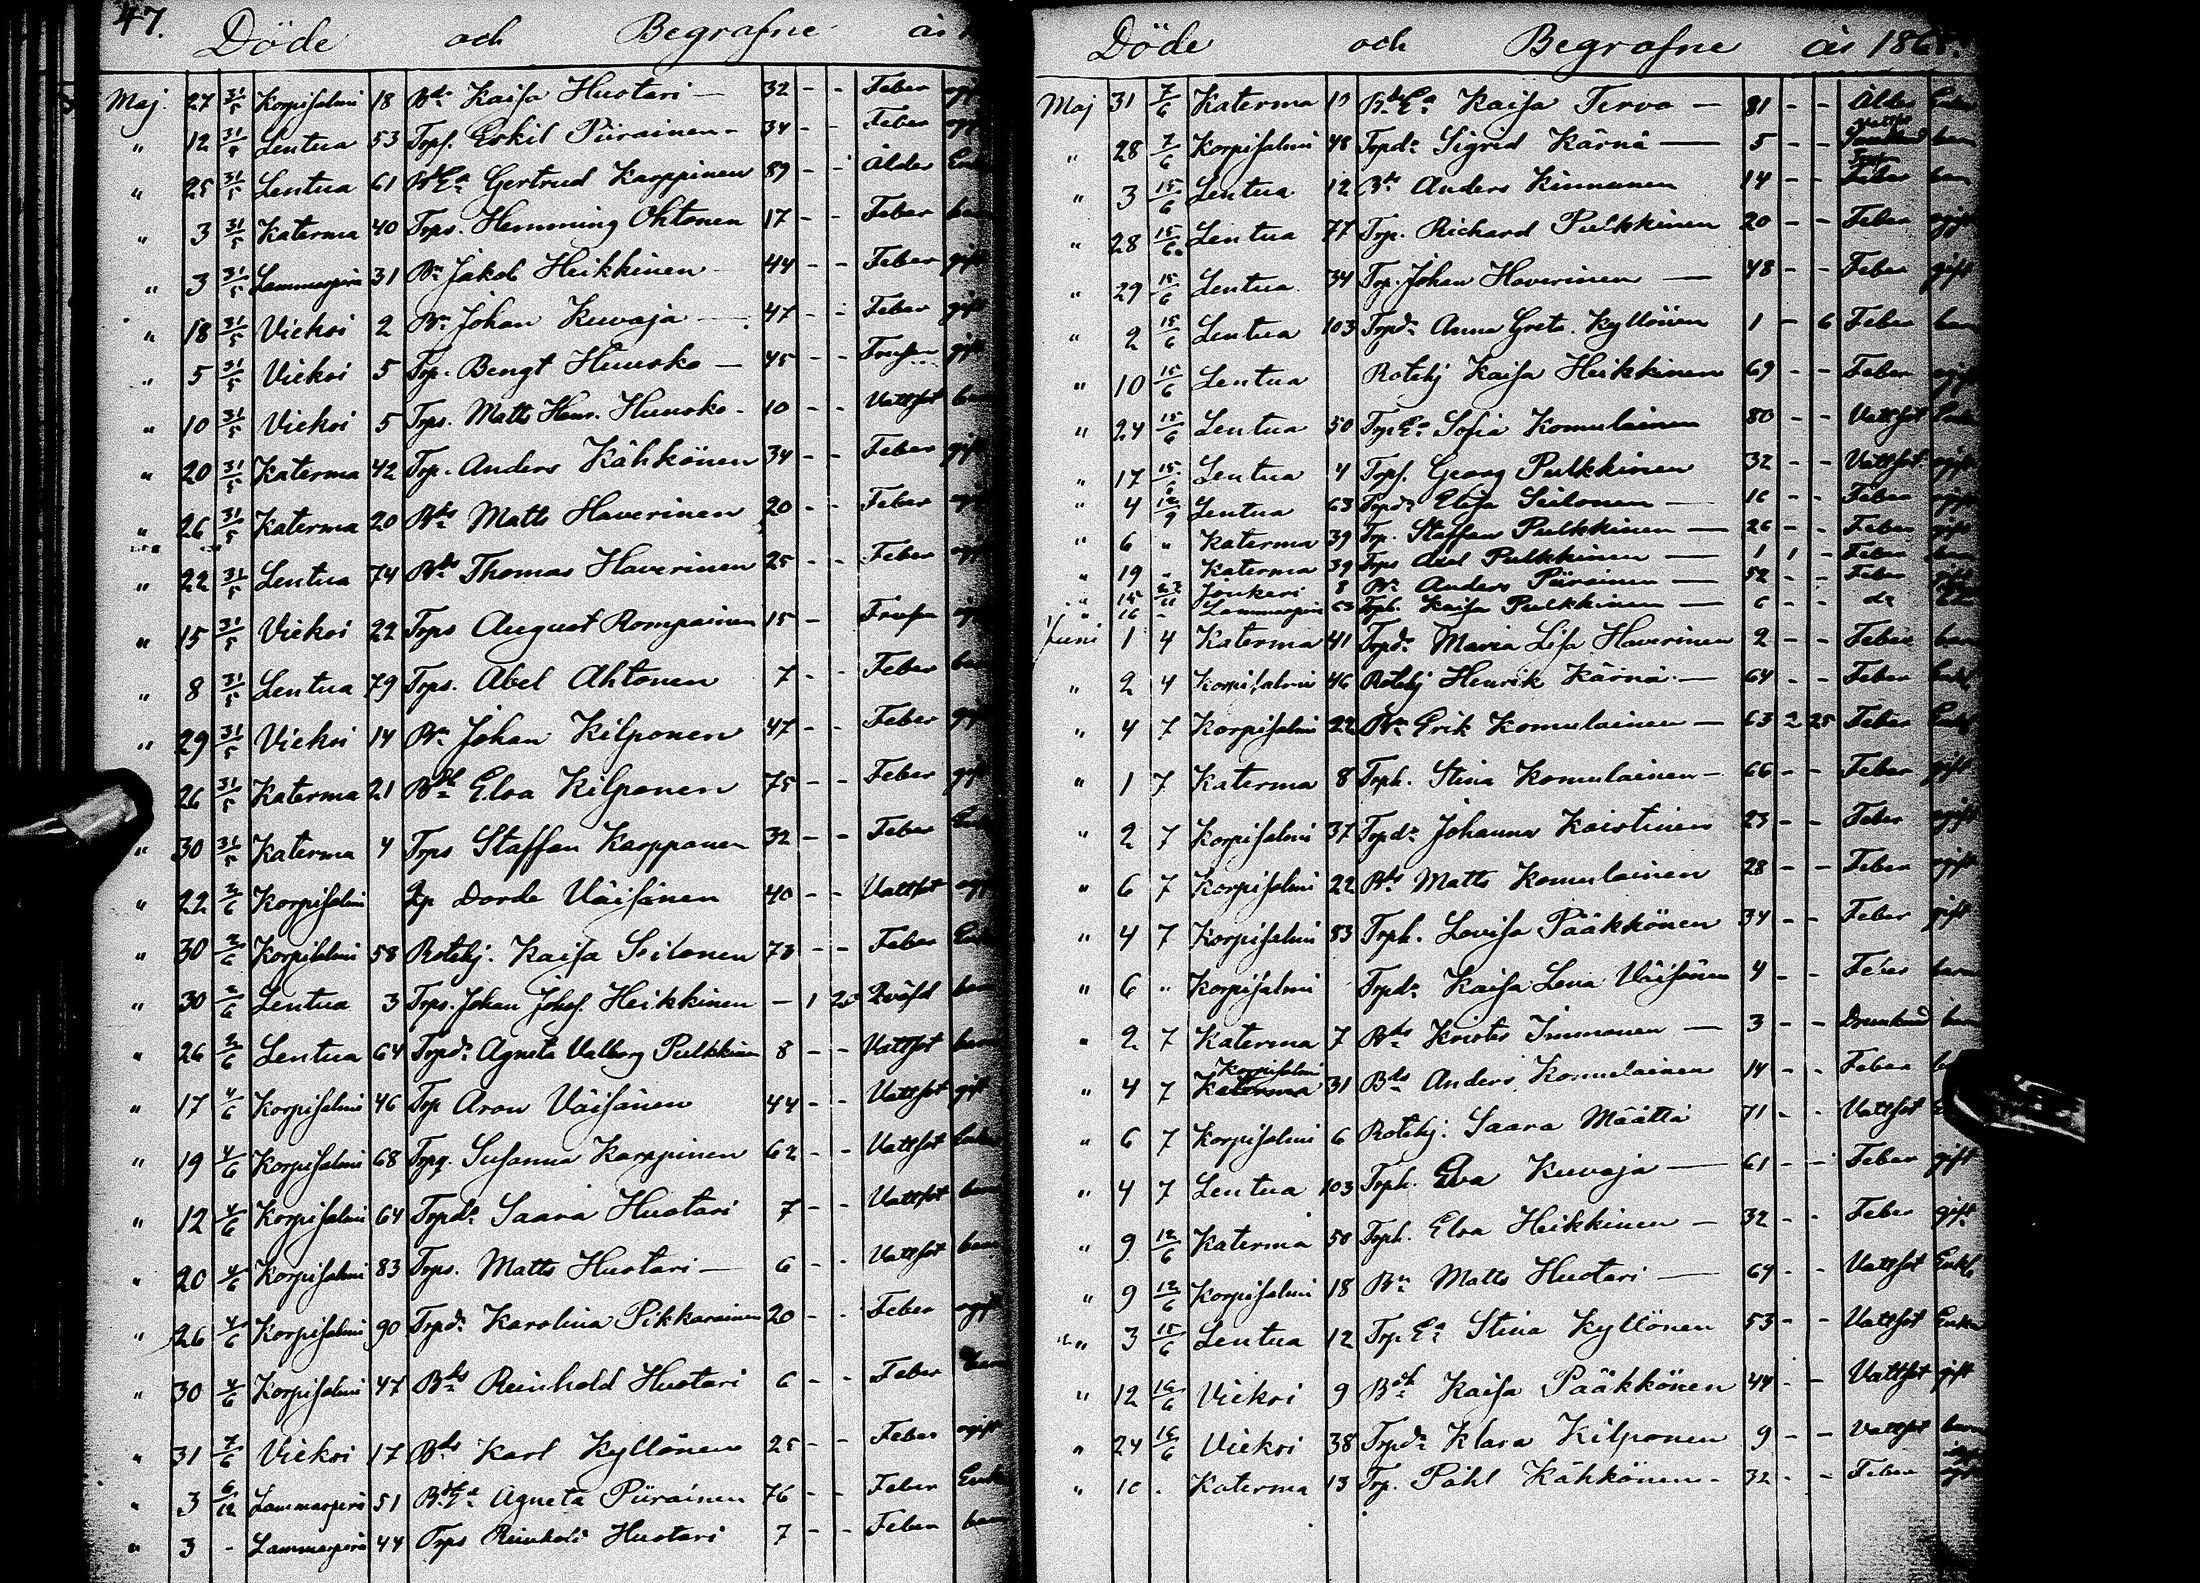 47.
Döde och Begrafne år
Maj 27 31/5 Korpisalmi 18 Bdr Kaisa Huotari — 32 - - Feber ogift
" 12 31/5 Lentua 53 Trps. Eskil Piirainen - 34 - - Feber ogift
" 25 31/5 Lentua 61 BdEa Gertrud Karppinen 89 - - Ålder Enka
" 3 31/5 Katerma 40 Trps. Hemming Ohtonen 17 - - Feber barn
" 3 31/5 Lammasperä 31 Bn Jakob Heikkinen 44 - - Feber gift
" 18 31/5 Vieksi 2 Bn Johan Kuvaja — 47 - - Feber gift
" 5 31/5 Vieksi 5 Trp. Bengt Huusko — 45 - - gift
" 10 31/5 Vieksi 5 Trps. Matts Hens. Huusko - 10 - - Vattsot barn
" 20 31/5 Katerma 42 Trp. Anders Kähkönen 34 - - Feber gift
" 26 31/5 Katerma 20 Bds Matts Haverinen 20 - - Feber ogift
" 22 31/5 Lentua 74 Bds Thomas Haverinen 25 - - Feber ogift
" 15 31/5 Vieksi 22 Trps August Rompainen 15 - ogift
" 8 31/5 Lentua 79 Trps. Abel Ahtonen 7 - - Feber barn
" 29 31/5 Vieksi 14 Bn Johan Kilponen 47 - - Feber gift
" 26 31/5 Katerma 21 Bdh Elsa Kilponen 75 - - Feber gift
" 30 31/5 Katerma 4 Trps Staffan Karppanen 32 - - Feber
" 22 2/6 Korpisalmi Dorde Väisänen 40 - - Vattsot ogift
" 30 2/6 Korpisalmi 58 Rotehj. Kaisa Seilonen 73 - - Feber Enka
" 30 2/6 Lentua 3 Trps. Johan Johs. Heikkinen — 1 20 Qväfd barn
" 26 2/6 Lentua 64 Trpdr Agneta Valborg Pulkkinen 8 - - Vattsot barn
" 17 4/6 Korpisalmi 46 Trp Aron Väisänen 44 - - Vattsot gift
" 19 4/6 Korpisalmi 68 Trpq. Susanna Karppinen 62 - - Vattsot Enka
" 12 4/6 Korpisalmi 64 Trpdr Saara Huotari 7 - - Vattsot barn
" 20 4/6 Korpisalmi 83 Trps. Matts Huotari — 6 - - Vattsot barn
" 26 4/6 Korpisalmi 90 Trpdr Karolina Pikkarainen 20 - - Feber ogift
" 30 4/6 Korpisalmi 47 Bds Reinhold Huotari 6 - - Feber barn
" 31 7/6 Vieksi 17 Bds Karl Kyllönen 25 - - Feber ogift
" 3 6/12 Lammasperä 51 BdEa Agneta Piirainen 76 - - Feber Enka
" 3 - Lammasperä 44 Trps Reinhold Huotari 7 - - Feber barn
Döde och Begrafne år 186
Maj 31 7/6 Katerma 10 BdEa Kaisa Tervo — 81 - - Ålder Enka
" 28 7/6 Korpisalmi 48 Trpdr Sigrid Kärnä — 5 - - Vattsot barn
" 3 15/6 Lentua 12 Bds Anders Kinnunen 14 - - Feber barn
" 28 15/6 Lentua 77 Trp. Richard Pulkkinen 20 - - Feber ogift
" 29 15/6 Lentua 34 Trp. Johan Haverinen — 48 - - Feber gift
" 2 15/6 Lentua 103 Trpdr Anna Greta Kyllönen 1 - 6 Feber barn
" 10 15/6 Lentua Rotehj Kaisa Heikkinen 69 - - Feber ogift
" 24 15/6 Lentua 50 TrpEa Sofia Komulainen 80 - - Vattsot Enka
" 17 15/6 Lentua 4 Trps. Georg Pulkkinen 32 - - Vattsot ogift
" 4 12/9 Lentua 63 Trpdr Elisa Seilonen — 16 - - Feber ogift
" 6 " Katerma 39 Trp. Staffan Pulkkinen — 26 - - Feber gift
" 19 " Katerma 39 Trps Axel Pulkkinen — 1 1 - Feber barn
" 15 Jonkeri 8 Bn Anders Piirainen — 52 - - Feber gift
" 16 - Lammasperä 63 Trph. Kaisa Pulkkinen — 6 - - do
Juni 1 4 Katerma 41 Trpdr Maria Lisa Haverinen 2 - - Feber barn
" 2 4 Korpisalmi 46 Rotehj Henrik Kärnä — 64 - - Feber Enkl
" 4 7 Korpisalmi 22 Bn Erik Komulainen — 63 2 25 Feber Enkl
" 1 7 Katerma 8 Trph. Stina Komulainen — 66 - - Feber gift
" 2 7 Korpisalmi 37 Trpdr Johanna Koistinen 23 - - Feber ogift
" 6 7 Korpisalmi 22 Bds Matts Komulainen 28 - - Feber ogift
" 4 7 Korpisalmi 83 Trph. Lovisa Pääkkönen 34 - - Feber gift
" 6 " Korpisalmi Trpdr Kaisa Lena Väisänen 4 - - Feber barn
" 2 7 Katerma 7 Bds Krister Immonen — 3 - - Drunknad barn
" 4 7 Korpisalmi Katerma 31 Bds Anders Komulainen 14 - - Feber
" 6 7 Korpisalmi 6 Rotehj. Saara Määttä 71 - - Vattsot
" 4 7 Lentua 103 Trph. Eva Kuvaja — 61 - - Feber gift
" 9 12/6 Katerma 50 Trph. Elsa Heikkinen — 32 - - Feber gift
" 9 12/6 Korpisalmi 18 Bn Matts Huotari — 64 - - Vattsot Enkl
" 3 15/6 Lentua 12 TrpEa Stina Kyllönen 53 - - Vattsot Enka
" 12 16/6 Vieksi 9 Bdh Kaisa Pääkkönen 44 - - Vattsot gift
" 24 16/6 Vieksi 38 Trpdr Klara Kilponen 9 - - Vattsot barn
" 10 . Katerma 13 Trp. Påhl Kähkönen - 32 - - Feber ogift